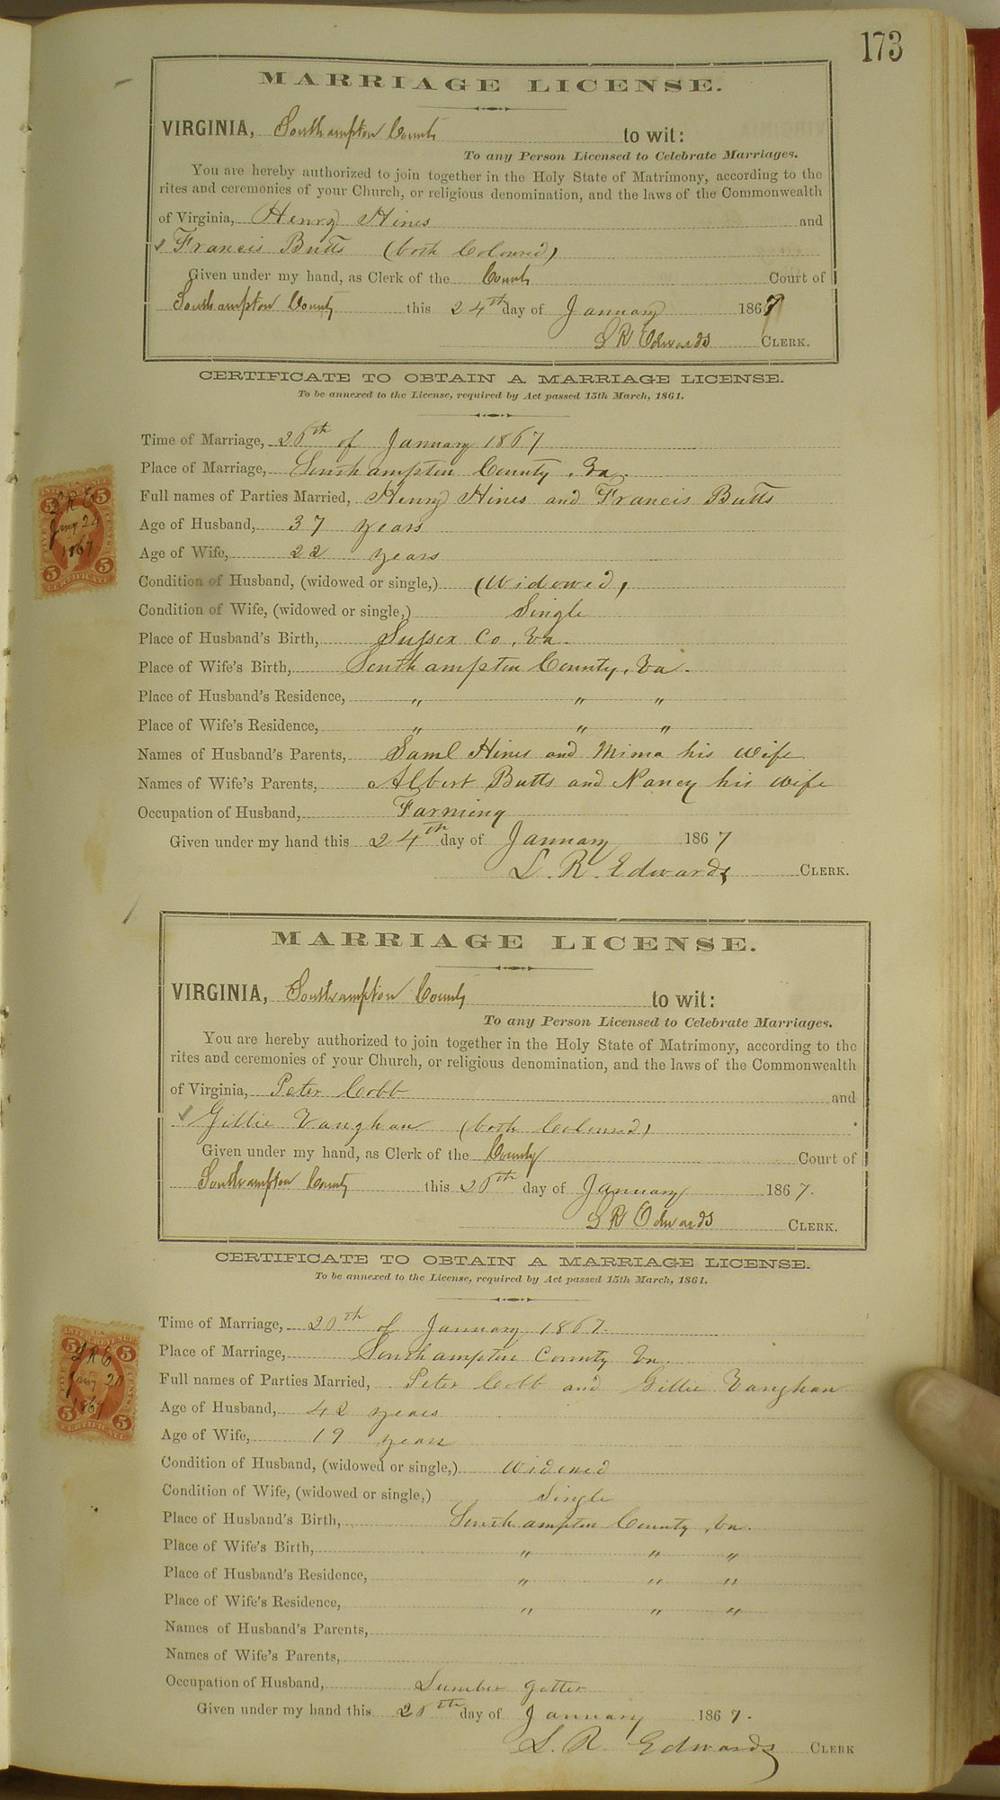 173
MARRIAGE LICENSE.
VIRGINIA, Southampton County to wit:
To any Person Licensed to Celebrate Marriages.
You are hereby authorized to join together in the Holy State of Matrimony, according to the
rites and ceremonies of your Church, or religious denomination, and the laws of the Commonwealth
of Virginia, Henry Hines and
Francis Butts (both Coloured)
Given under my hand, as Clerk of the County Court of
Southampton County this 24th day of January 1867
L R Edwards CLERK.
CERTIFICATE TO OBTAIN A MARRIAGE LICENSE.
To be annexed to the License, required by Act passed 15th March, 1861.
Time of Marriage, of January 1867
Place of Marriage, Southampton County, Va.
Full names of Parties Married, Henry Hines and Francis Butts
Age of Husband, 37 years
Age of Wife, 22 years
Condition of Husband, (widowed or single,) (Widowed)
Condition of Wife, (widowed or single,) Single
Place of Husband's Birth, Sussex Co, Va.
Place of Wife's Birth, Southampton County, Va.
Place of Husband's Residence, " " "
Place of Wife's Residence, " " "
Names of Husband's Parents, Saml Hines and Mima his wife
Names of Wife's Parents, Albert Butts and Nancy his wife
Occupation of Husband, Farming
Given under my hand this 24th day of January 1867
L. R. Edwards CLERK.
5 5
L R E
Jany 24
1867
5 5
CERTIFICATE
MARRIAGE LICENSE.
VIRGINIA, Southampton County to wit:
To any Person Licensed to Celebrate Marriages.
You are hereby authorized to join together in the Holy State of Matrimony, according to the
rites and ceremonies of your Church, or religious denomination, and the laws of the Commonwealth
of Virginia, Peter Cobb and
Gillie Vaughan (both Coloured)
Given under my hand, as Clerk of the County Court of
Southampton County this day of January 1867.
L R Edwards CLERK.
CERTIFICATE TO OBTAIN A MARRIAGE LICENSE.
To be annexed to the License, required by Act passed 15th March, 1861.
Time of Marriage, of January 1867.
Place of Marriage, Southampton County Va.
Full names of Parties Married, Peter Cobb and Gillie Vaughan
Age of Husband, 42 years
Age of Wife, 19 years
Condition of Husband, (widowed or single,) Widowed
Condition of Wife, (widowed or single,) Single
Place of Husband's Birth, Southampton County, Va.
Place of Wife's Birth, " " "
Place of Husband's Residence, " " "
Place of Wife's Residence, " " "
Names of Husband's Parents,
Names of Wife's Parents,
Occupation of Husband, Lumber getter
Given under my hand this day of January 1867.
L. R. Edwards CLERK
5 5
L R E
Jany
1867
5 5
CERTIFICATE